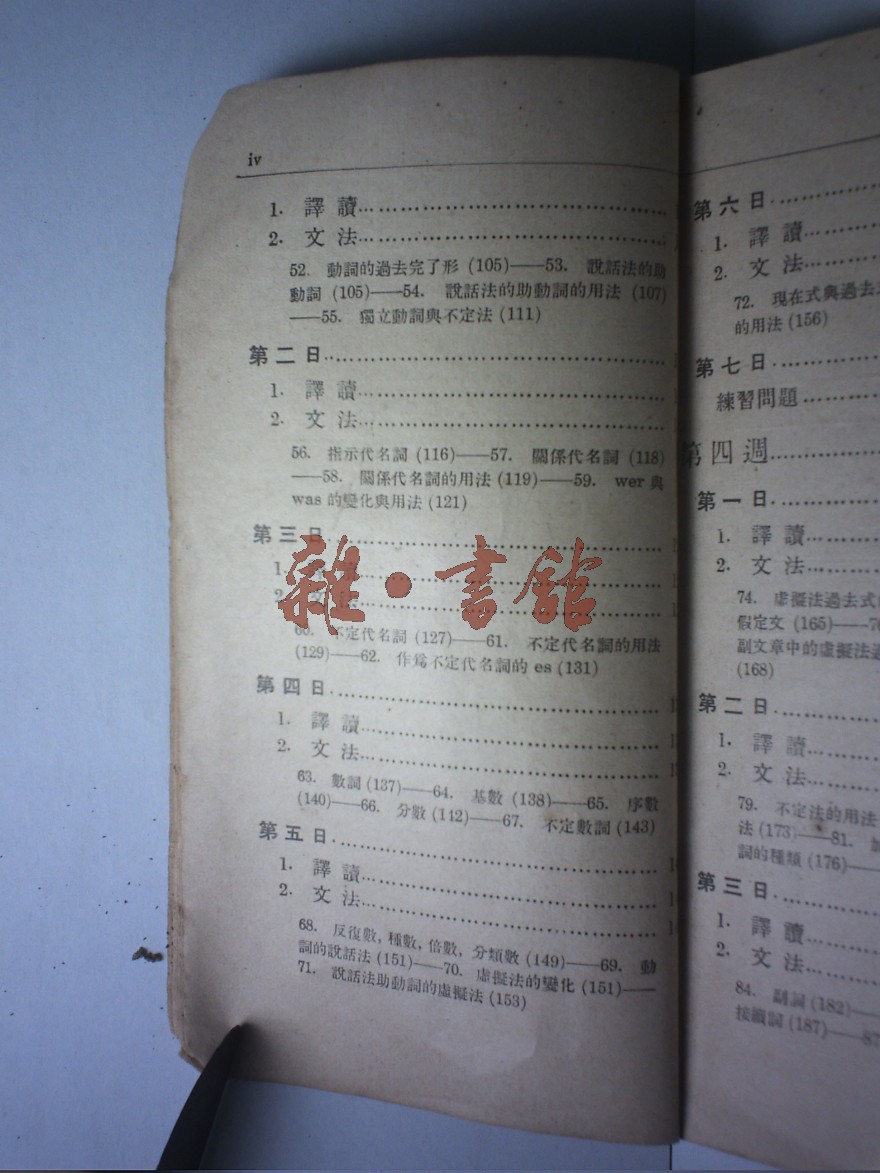 iv
1. 譯讀
2. 文法
52. 動詞的過去完了形 (105)——53. 說話法的助
動詞 (105)——54. 說話法的助動詞的用法 (107)
——55. 獨立動詞與不定法 (111)
第二日
1. 譯讀
2. 文法
56. 指示代名詞 (116)——57. 關係代名詞 (118)
——58. 關係代名詞的用法 (119)——59. wer 與
was 的變化與用法 (121)
第三日
1.
2. 文法
雜·書館
60. 不定代名詞 (127)——61. 不定代名詞的用法
(129)——62. 作爲不定代名詞的 es (131)
第四日
1. 譯讀
2. 文法
63. 數詞 (137)——64. 基數 (138)——65. 序數
(140)——66. 分數 (142)——67. 不定數詞 (143)
第五日
1. 譯讀
2. 文法
68. 反復數, 種數, 倍數, 分類數 (149)——69. 動
詞的說話法 (151)——70. 虛擬法的變化 (151)——
71. 說話法助動詞的虛擬法 (153)
第六日
1. 譯讀
2. 文法
72. 現在式與過去
的用法 (156)
第七日
練習問題
第四週
第一日
1. 譯讀
2. 文法
74. 虛擬法過去式
假定文 (165)——
副文章中的虛擬法
(168)
第二日
1. 譯讀
2. 文法
79. 不定法的用法
法 (173)——81.
詞的種類 (176)——
第三日
1. 譯讀
2. 文法
84. 副詞 (182)——
接續詞 (187)——87